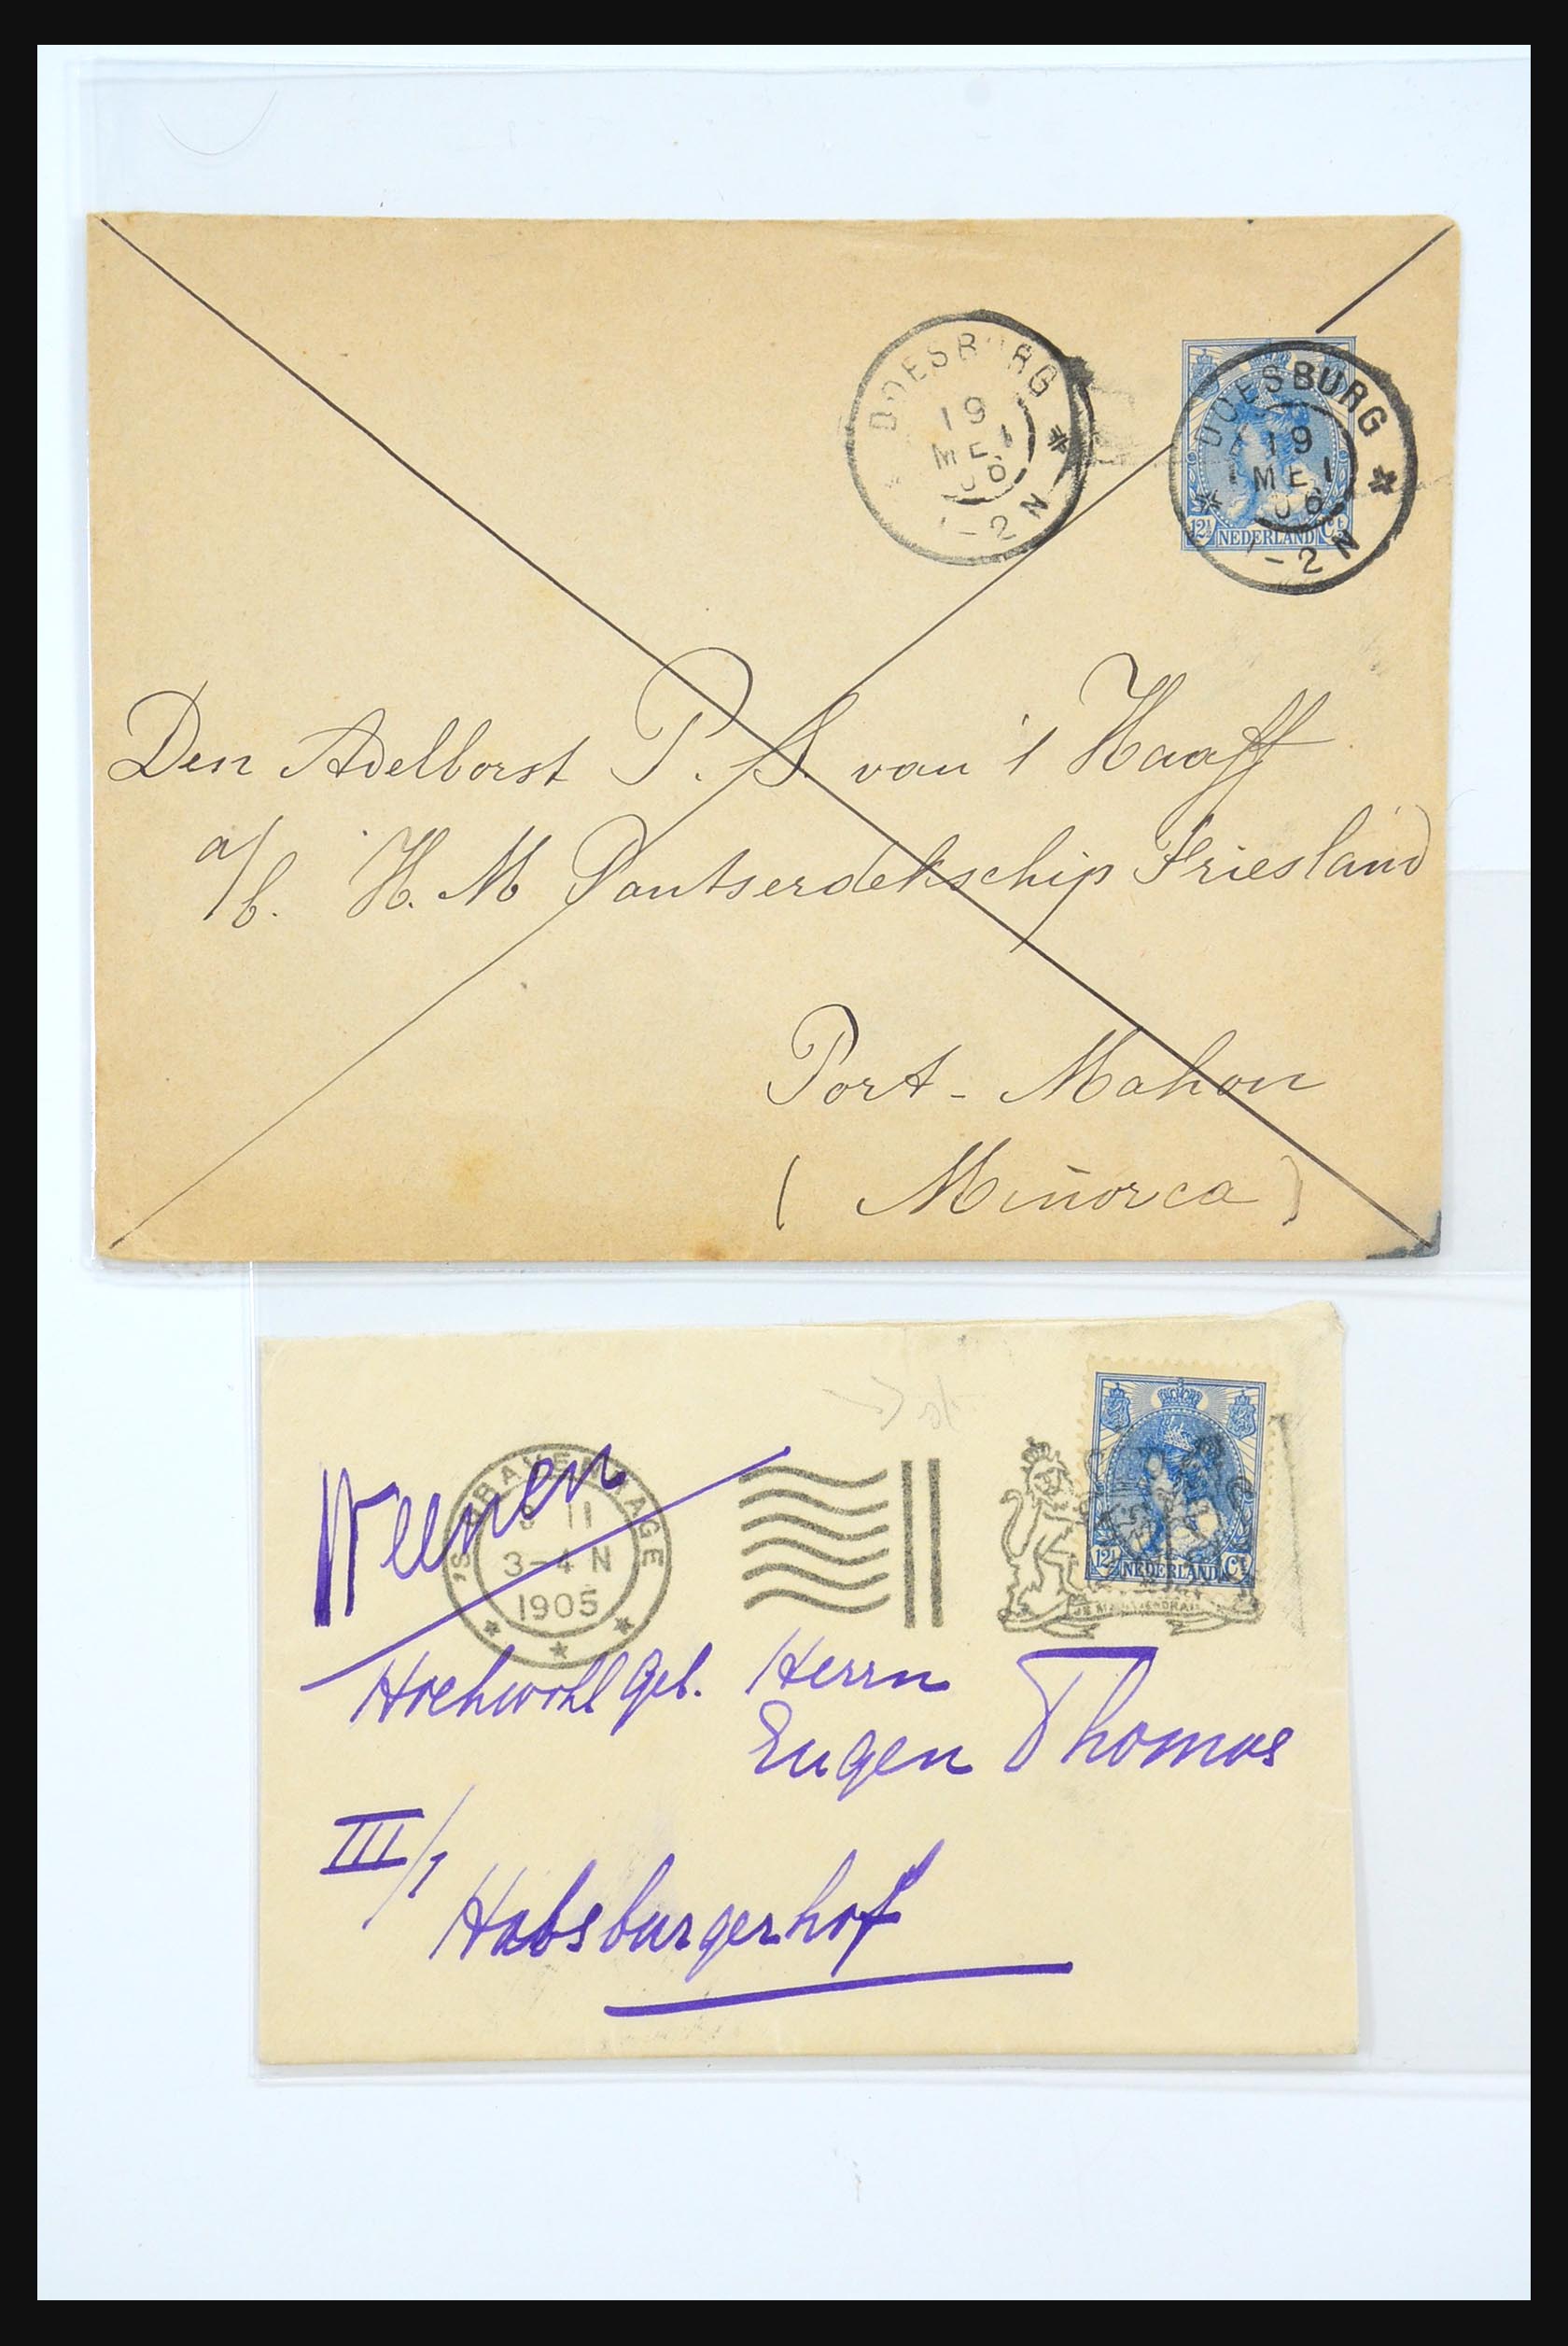 DOESBURG
19
MEI
06
1-2N
DOESBURG
19
MEI
06
1-2N
12½ NEDERLAND Ct
Den Adelborst P. S. van 't Haaff
a/b. H. M Pantserdekschip Friesland
Port - Mahon
( Minorca )
'S GRAVENHAGE
3-4 N
1905
12½ NEDERLAND Ct
JE MAINTIENDRAI
Weenen
Hochwohlgeb. Herrn
Eugen Thomas
III/1
Habsburgerhof